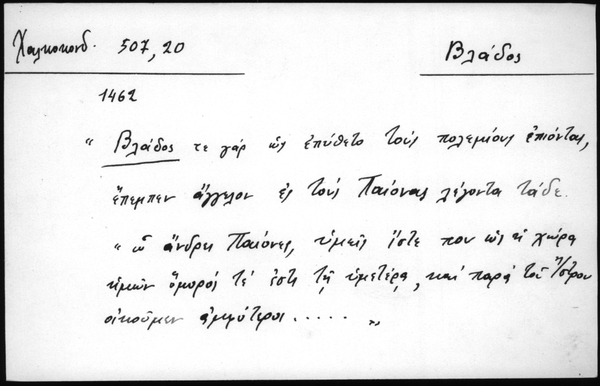 Χαλκοκονδ. 507, 20
Βλάδος
1462
" Βλάδος τε γὰρ ὡς ἐπύθετο τοὺς πολεμίους ἐπιόντας,
ἔπεμπεν ἄγγελον ἐς τοὺς Παίονας λέγοντα τάδε.
" ὦ ἄνδρες Παίονες, ὑμεῖς ἴστε που ὡς ἡ χώρα
ἡμῶν ὅμορός τέ ἐστι τῇ ὑμετέρᾳ, καὶ παρὰ τὸν Ἴστρον
οἰκοῦμεν ἀμφότεροι ..... "